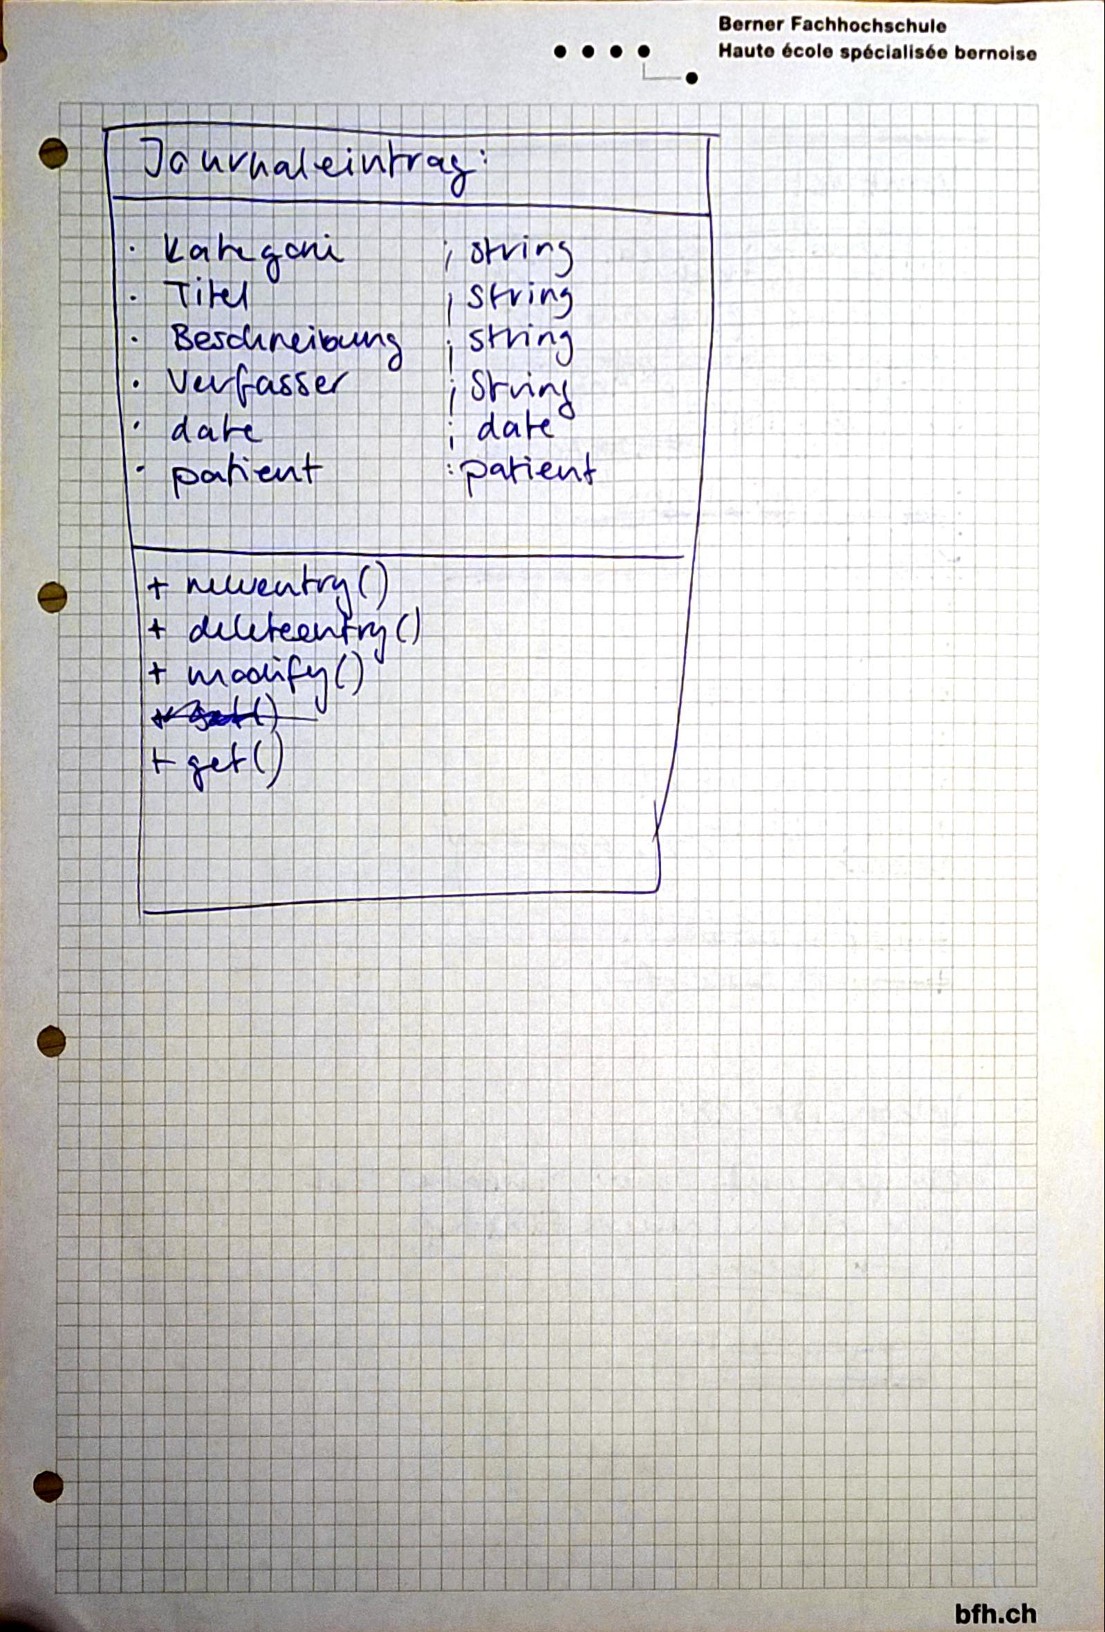 Berner Fachhochschule
Haute école spécialisée bernoise
Journaleintrag:
· Kategori : string
· Titel : string
· Beschreibung : string
· Verfasser : String
· date : date
· patient : patient
+ newentry()
+ deleteentry()
+ modify()
+ get()
bfh.ch